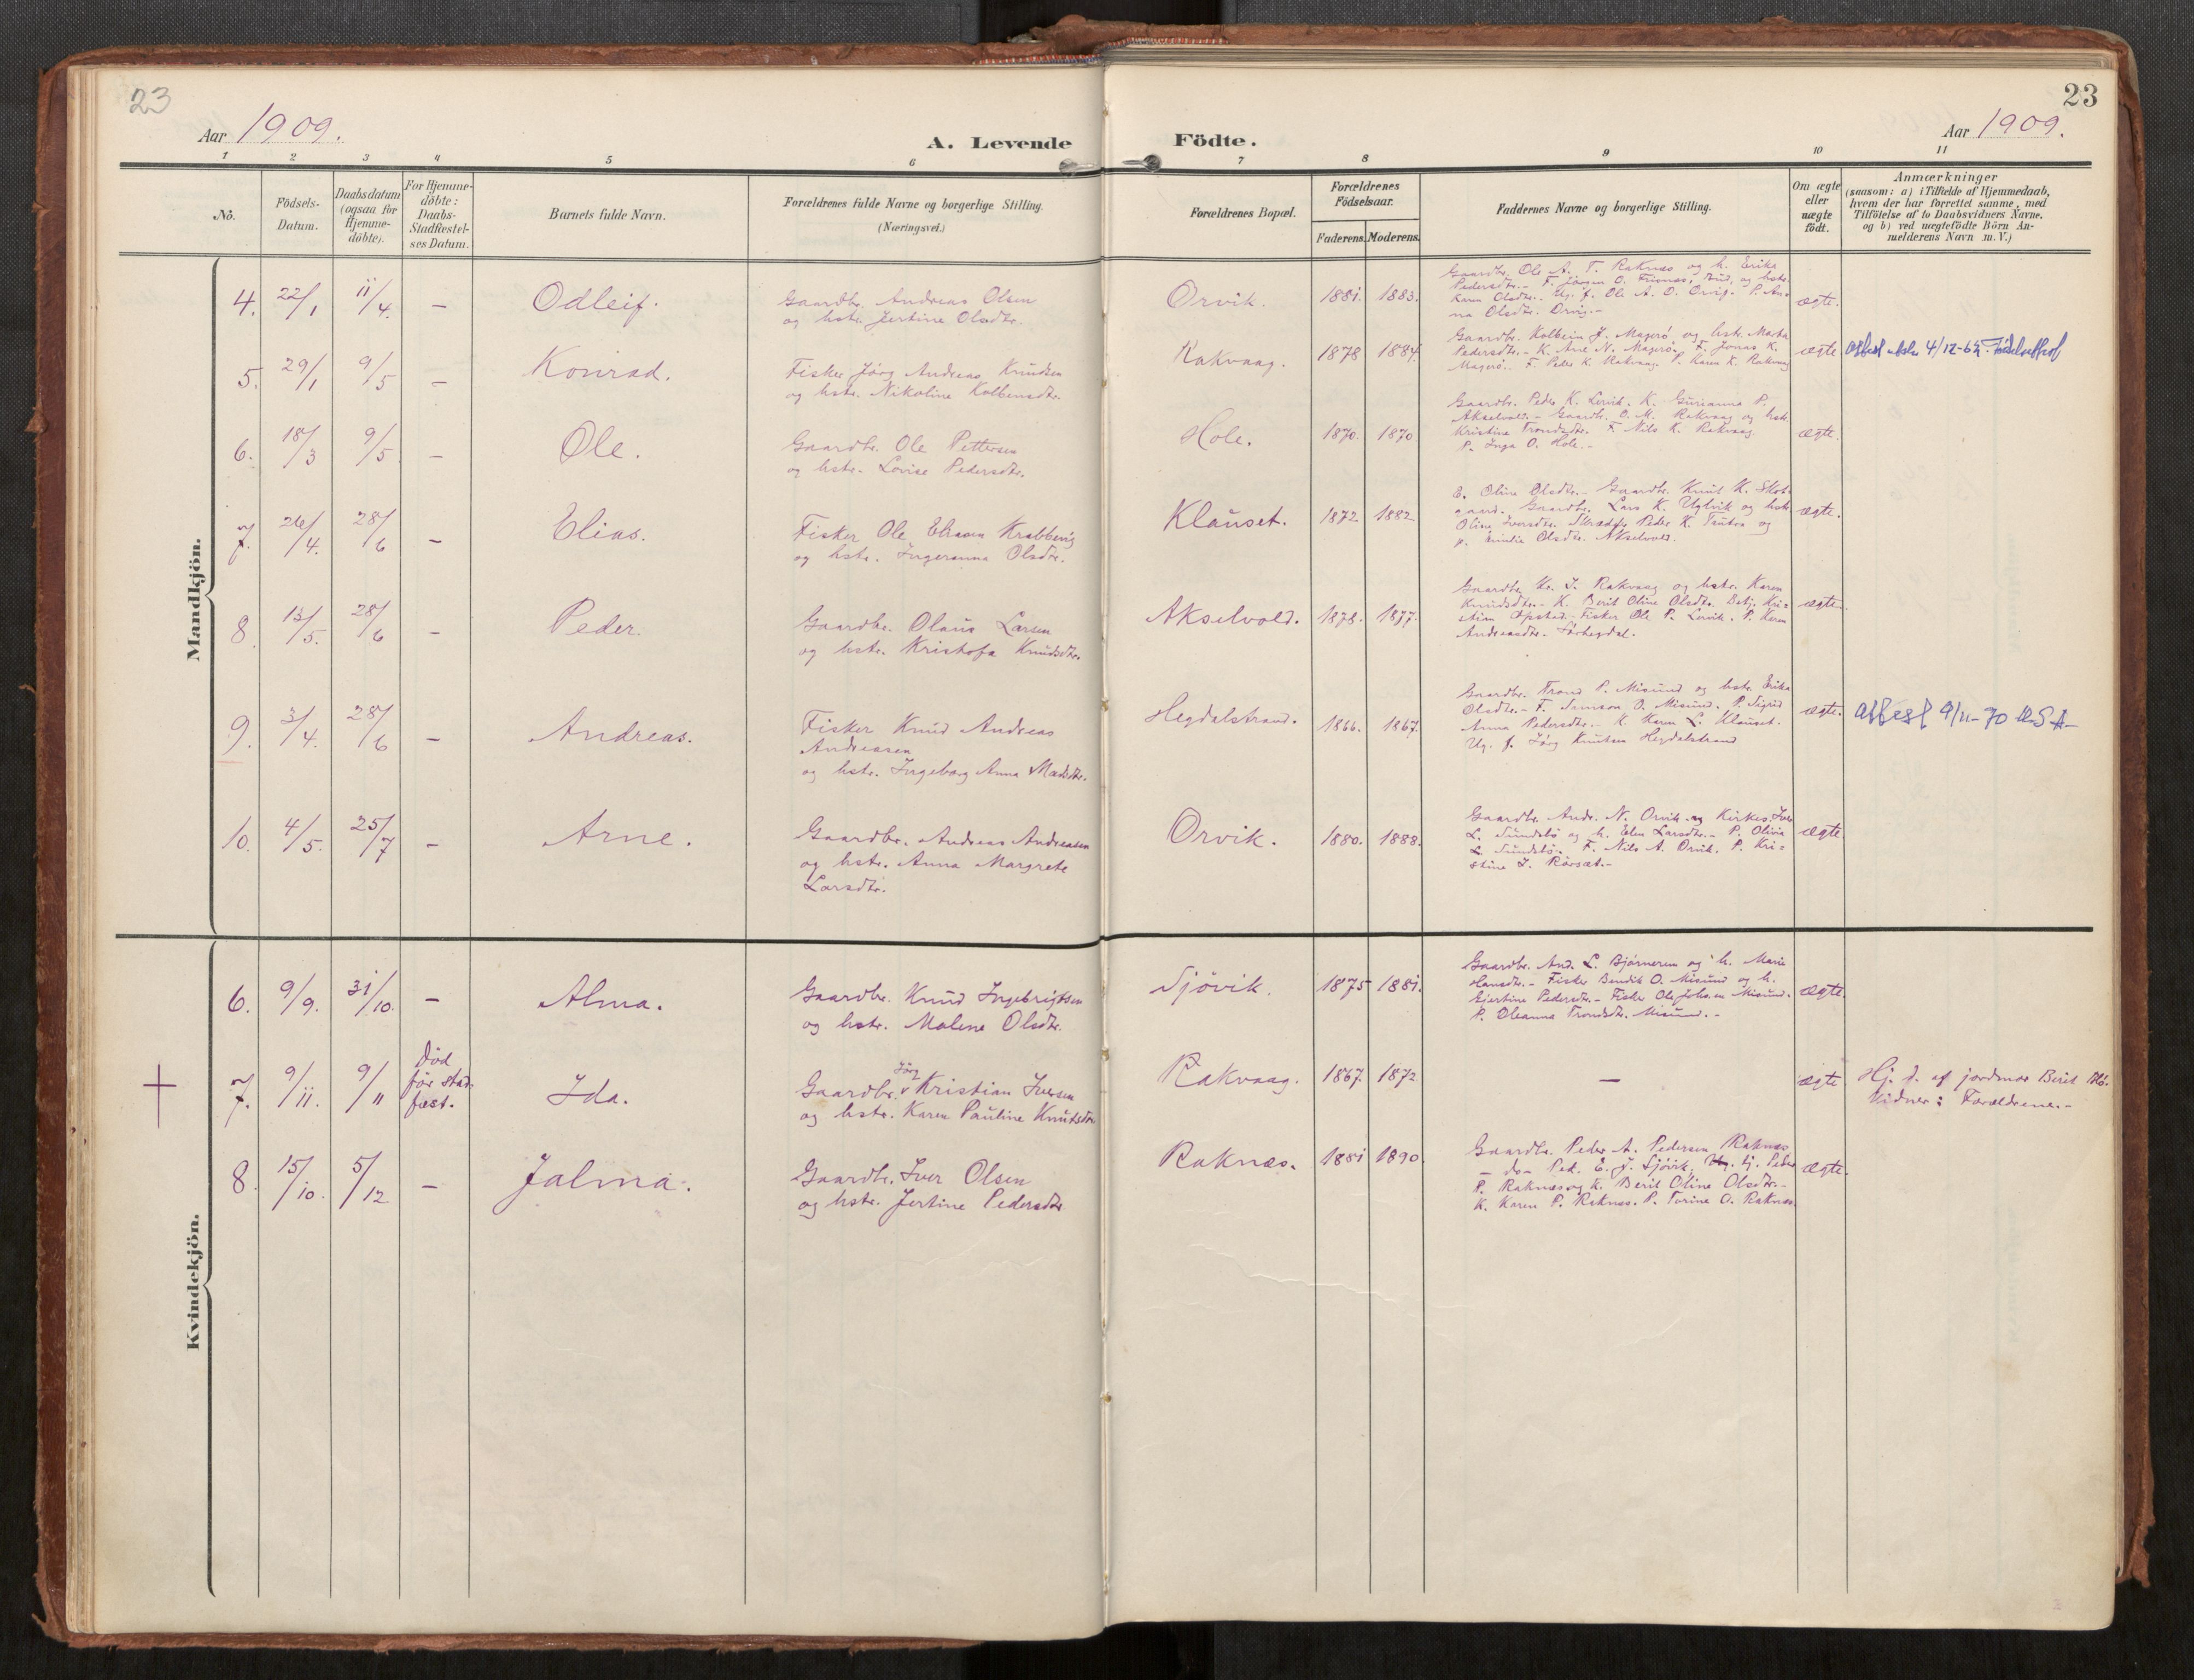 23
23
Aar 1909.
A. Levende
Födte.
Aar 1909.
1 2 3 4 5 6 7 8 9 10 11
No.
Födsels-
Datum.
Daabsdatum
(ogsaa for
Hjemme-
döbte).
For Hjemme-
döbte:
Daabs-
Stadfæstel-
ses Datum.
Barnets fulde Navn.
Forældrenes fulde Navne og borgerlige Stilling.
(Næringsvei.)
Forældrenes Bopæl.
Forældrenes
Födselsaar.
Faderens. Moderens.
Faddernes Navne og borgerlige Stilling.
Om ægte
eller
uægte
födt.
Anmærkninger
(saasom: a) i Tilfælde af Hjemmedaab,
hvem der har forrettet samme, med
Tilföielse af to Daabsvidners Navne,
og b) ved uægtefödte Börn An-
melderens Navn m. V.)
Mandkjön.
4. 22/1 11/4. - Odleif.
Gaardbr. Andreas Olsen
og hstr. Jertine Olsdtr.
Orvik. 1881. 1883.
Gaardbr. Ole A. T. Raknæs og h. Erika
Pedersdtr.- F. Jörgen O. Bud, og hstr.
Karen Olsdtr. Ug. f. Ole A. O. P. An-
na Olsdtr.
ægte.
5. 29/1 9/5 - Konrad.
Fisker Jörg Andreas Knudsen
og hstr. Nikoline Kolbensdtr.
Rakvaag. 1878 1884.
Gaardbr. Kolbein J. Magerö og hstr. Marta
Pedersdtr.- K. Ane N. Magerö. F. Jonas K.
Magerö. F. Peder K. Rakvaag. P. Karen K. Rakvaag
ægte 4/12-62
6. 18/3 9/5 - Ole.
Gaardbr. Ole Pettersen
og hstr. Lovise Pedersdtr.
Hole. 1870. 1870
Gaardbr. Peder K. Lervik. K. Gurianna P.
Akselvold.- Gaardb. O. M. Rakvaag og hstr.
Kristine Trondsdtr. F. Nils K. Rakvaag
P. Inga O. Hole.-
ægte.
7. 26/4. 28/6 - Elias.
Fisker Ole Krabbevig
og hstr. Ingeranna Olsdtr.
Klauset. 1872 1882
E. Oline Olsdtr.- Gaardbr. Knut K. Skot-
gaard. Gaardbr. Lars K. Uglvik og hstr
Oline Iversdtr. Peder K. Tautra og
p. Emilie Olsdtr. Akselvold.
ægte.
8. 13/5. 28/6 - Peder.
Gaardbr. Olaus Larsen
og hstr. Kristofa Knudsdtr.
Akselvold. 1878. 1877.
Gaardbr. Kr. I. Rakvaag og hstr. Karen
Knudsdtr.- K. Berit Oline Olsdtr. Kri-
stian Opstad. Fisker Ole P. Lervik. P. Karen
Andreasdtr.
ægte.
9. 3/4. 28/6 - Andreas.
Fisker Knud Andreas
Andreassen
og hstr. Ingeborg Anna Madsdtr.
Hegdalstrand. 1866. 1867.
Gaardbr. Trond P. Misund og hstr. Erika
Olsdtr.- F. Samson O. Misund. P. Sigrid
Anna Pedersdtr.- K. Karen L. Klauset.
Ug. f. Jörg Knutsen Hegdalstrand
ægte. attest 9/11-70 USA
10. 4/5. 25/7 - Arne.
Gaardbr. Andreas Andreassen
og hstr. Anna Margrete
Larsdtr.
Orvik. 1880. 1888.
Gaardbr. Andr. N. Orvik og Kirkes. Iver
L. Sundsbö og h. Elen Larsdtr.- P. Olivia
L. Sundsbö. F. Nils A. Orvik. P. Kri-
stine I. Rörsæt.-
ægte
Kvindekjön.
6. 9/9. 31/10. - Alma.
Gaardbr. Knud Ingebrigtsen
og hstr. Malene Olsdtr.
Sjövik. 1875 1881.
Gaardbr. And. L. Björnerem og h. Marie
Hansdtr.- Fisker Bendik O. Misund og h.
Gjertine Pedersdtr.- Fisker Ole Johsen Misund.
P. Oleanna Trondsdtr. Misund.-
ægte.
† 7. 9/11. 9/11 Död
för stad-
fæst. Ida.
Jörg
Gaardbr. v Kristian Iversen
og hstr. Karen Pauline Knutsdtr
Rakvaag. 1867. 1872 -
ægte Hj. d. af jordmor Berit
Vidner: Forældrene.-
8. 15/10. 5/12 - Jalma.
Gaardbr. Iver Olsen
og hstr. Jertine Pedersdtr
Raknæs. 1881 1890.
Gaardbr. Peder A. Pedersen Raknæs
- do - Ped. E. J. Sjövik, Peder
P. Raknæs og K. Berit Oline Olsdtr.-
K. Karen P. Raknæs. P. Torine O. Raknæs.
ægte.